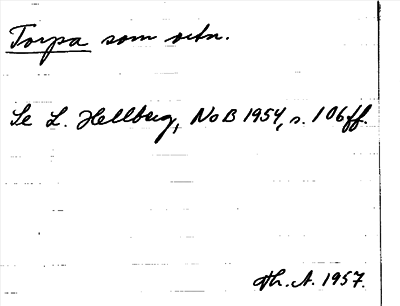 Torpa som ortn.
Se L. Hellberg, NoB 1954, s. 106ff.
Th. A. 1957.